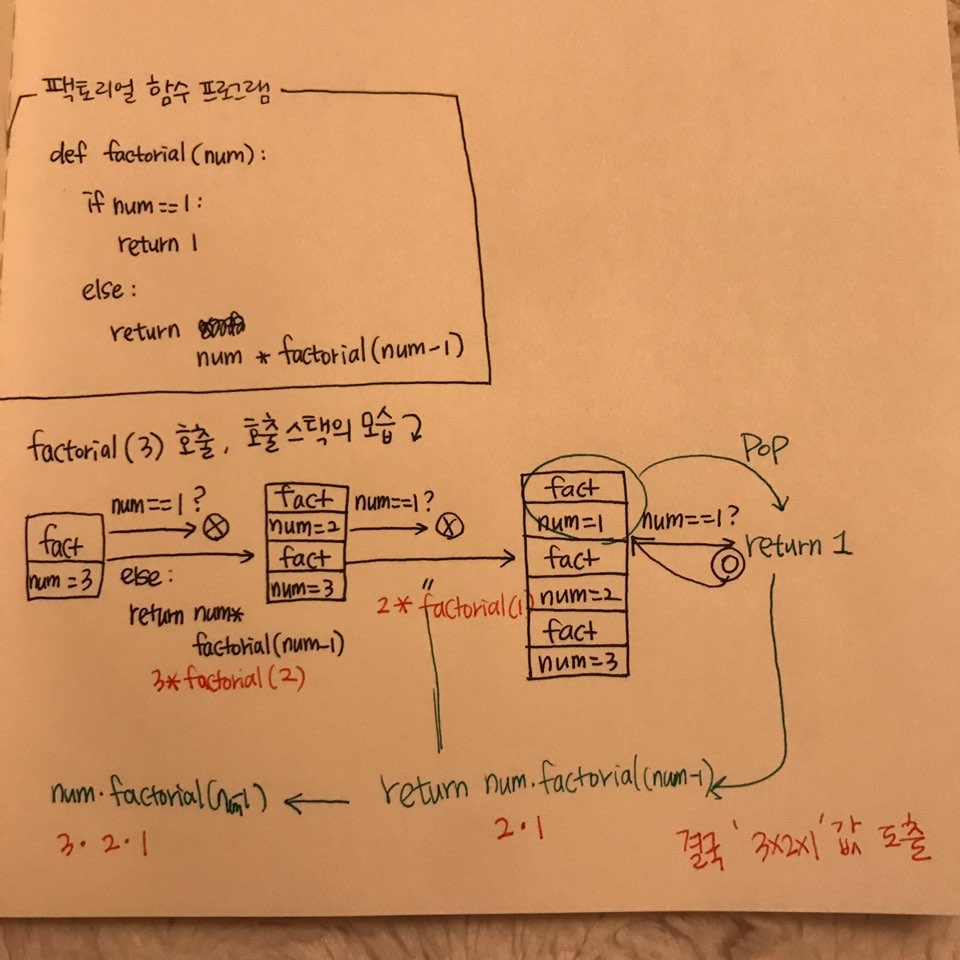 팩토리얼 함수 프로그램
def factorial(num):
if num==1:
return 1
else:
return
num * factorial(num-1)
factorial(3) 호출, 호출스택의 모습
fact
num=3
num==1?
else:
return num*
factorial(num-1)
3*factorial(2)
fact
num=2
fact
num=3
num==1?
"
2*factorial(1)
fact
num=1
fact
num=2
fact
num=3
num==1?
POP
return 1
return num·factorial(num-1)
2·1
num·factorial(num-1)
3·2·1
결국 '3×2×1' 값 도출